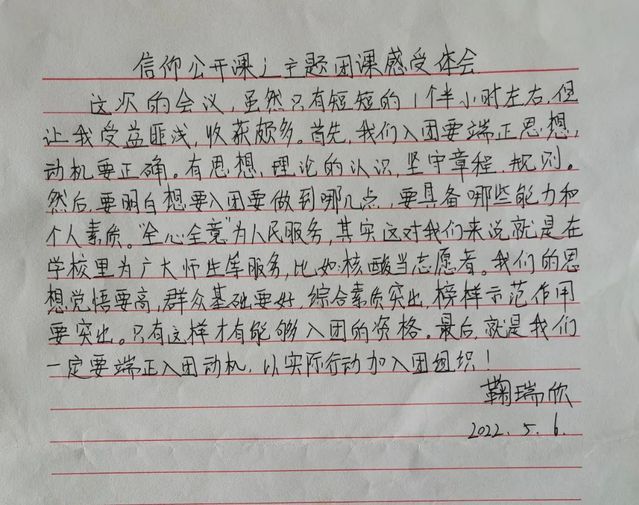 信仰公开课；主题团课感受体会
这次的会议，虽然只有短短的1个半小时左右，但
让我受益匪浅，收获颇多。首先，我们入团要端正思想，
动机要正确。有思想，理论的认识，坚守章程，规则。
然后，要明白想要入团要做到哪几点，要具备哪些能力和
个人素质。“全心全意”为人民服务，其实这对我们来说就是在
学校里为广大师生等服务，比如：核酸当志愿者。我们的思
想觉悟要高，群众基础要好，综合素质突出，榜样示范作用
要突出。只有这样才有能够入团的资格。最后，就是我们
一定要端正入团动机，以实际行动加入团组织！
鞠瑞欣
2022.5.6.